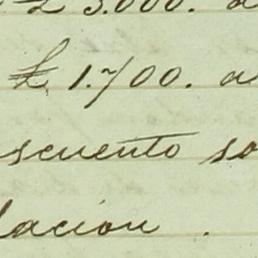 £ 3.000. a
£ 1.700. a
scuento so
lacion.